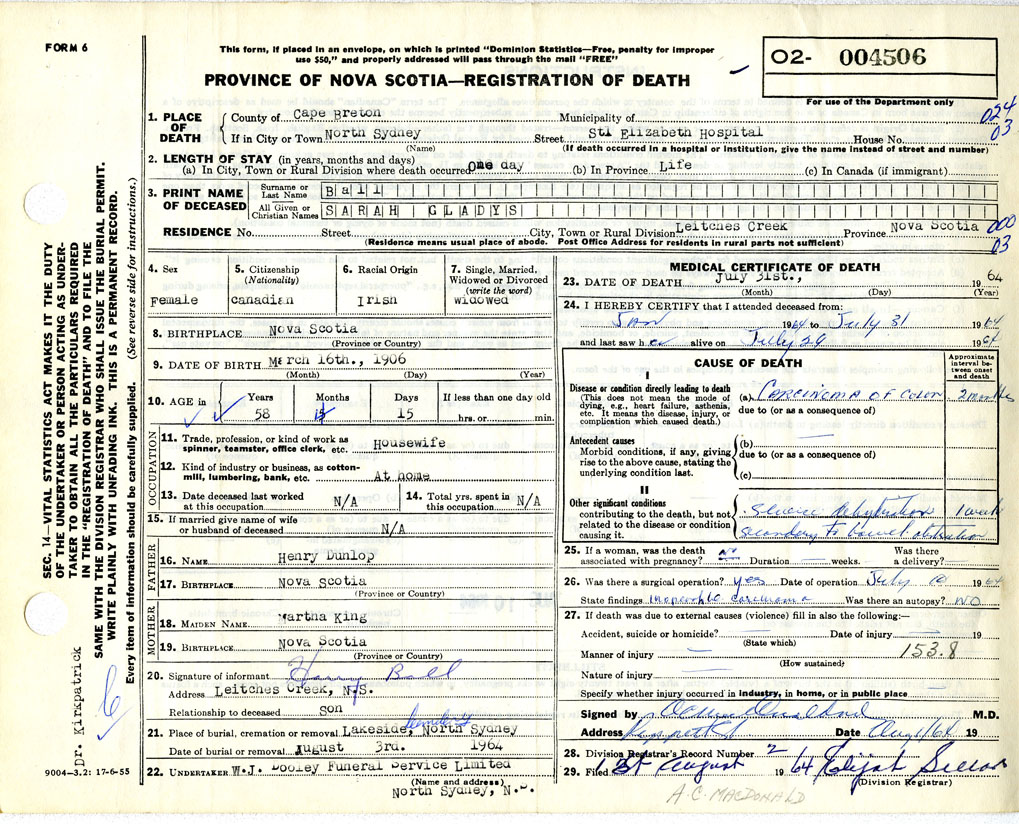 FORM 6
This form, if placed in an envelope, on which is printed "Dominion Statistics—Free, penalty for improper
use $50," and properly addressed will pass through the mail "FREE"
PROVINCE OF NOVA SCOTIA—REGISTRATION OF DEATH
02- 004506
For use of the Department only
024
03
SEC. 14—VITAL STATISTICS ACT MAKES IT THE DUTY
OF THE UNDERTAKER OR PERSON ACTING AS UNDER-
TAKER TO OBTAIN ALL THE PARTICULARS REQUIRED
IN THE "REGISTRATION OF DEATH" AND TO FILE THE
SAME WITH THE DIVISION REGISTRAR WHO SHALL ISSUE THE BURIAL PERMIT.
WRITE PLAINLY WITH UNFADING INK. THIS IS A PERMANENT RECORD.
Every item of information should be carefully supplied. (See reverse side for instructions.)
Dr. Kirkpatrick
6
9004—3.2: 17-6-55
1. PLACE OF DEATH County of Cape Breton Municipality of
If in City or Town North Sydney Street Stl Elizabeth Hospital House No.
(Name) (If death occurred in a hospital or institution, give the name instead of street and number)
2. LENGTH OF STAY (in years, months and days)
(a) In City, Town or Rural Division where death occurred One day (b) In Province Life (c) In Canada (if immigrant)
3. PRINT NAME OF DECEASED Surname or Last Name Ball
All Given or Christian Names SARAH GLADYS
RESIDENCE No. Street City, Town or Rural Division Leitches Creek Province Nova Scotia 000
(Residence means usual place of abode. Post Office Address for residents in rural parts not sufficient) 03
4. Sex Female
5. Citizenship (Nationality) canadian
6. Racial Origin Irish
7. Single, Married, Widowed or Divorced (write the word) widowed
8. BIRTHPLACE Nova Scotia
(Province or Country)
9. DATE OF BIRTH March 16th., 1906
(Month) (Day) (Year)
10. AGE in Years 58 Months 4 Days 15 If less than one day old hrs. or min.
OCCUPATION
11. Trade, profession, or kind of work as spinner, teamster, office clerk, etc. Housewife
12. Kind of industry or business, as cotton-mill, lumbering, bank, etc. At home
13. Date deceased last worked at this occupation N/A
14. Total yrs. spent in this occupation N/A
15. If married give name of wife or husband of deceased N/A
FATHER
16. NAME Henry Dunlop
17. BIRTHPLACE Nova Scotia
(Province or Country)
MOTHER
18. MAIDEN NAME Martha King
19. BIRTHPLACE Nova Scotia
(Province or Country)
20. Signature of informant Harry Ball
Address Leitches Creek, N.S.
Relationship to deceased son
21. Place of burial, cremation or removal Lakeside, North Sydney
Date of burial or removal August 3rd. 1964
22. UNDERTAKER W.J. Dooley Funeral Service Limited
(Name and address)
North Sydney, N.S.
MEDICAL CERTIFICATE OF DEATH
23. DATE OF DEATH July 31st., 19 64
(Month) (Day) (Year)
24. I HEREBY CERTIFY that I attended deceased from:
JAN 1964 to July 31 1964
and last saw her alive on July 29 1964
CAUSE OF DEATH
Approximate interval between onset and death
I
Disease or condition directly leading to death
(This does not mean the mode of dying, e.g., heart failure, asthenia, etc. It means the disease, injury, or complication which caused death.)
(a) Carcinoma of Colon 2 months
due to (or as a consequence of)
Antecedent causes
Morbid conditions, if any, giving rise to the above cause, stating the underlying condition last.
(b)
due to (or as a consequence of)
(c)
II
Other significant conditions
contributing to the death, but not related to the disease or condition causing it.
Severe dehydration 1 week
Secondary to bowel obstruction
25. If a woman, was the death associated with pregnancy? no Duration weeks. Was there a delivery?
26. Was there a surgical operation? yes Date of operation July 10 1964
State findings Inoperable carcinoma Was there an autopsy? NO
27. If death was due to external causes (violence) fill in also the following:—
Accident, suicide or homicide? Date of injury 19
(State which)
Manner of injury 153.8
(How sustained)
Nature of injury
Specify whether injury occurred in industry, in home, or in public place
Signed by M.D.
Address Date Aug 1/64 19
28. Division Registrar's Record Number 2
29. Filed August 1964 Elijah
(Division Registrar)
A.C. MACDONALD